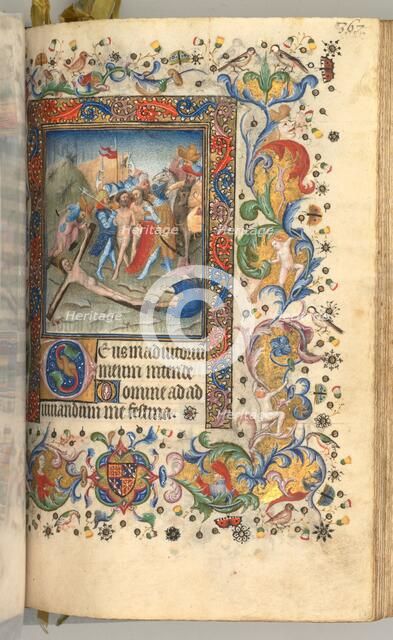 Deus in adiutoriu
meum intende
Domine ad ad
iuuandum me festina
Heritage
Heritage
Heritage
Heritage